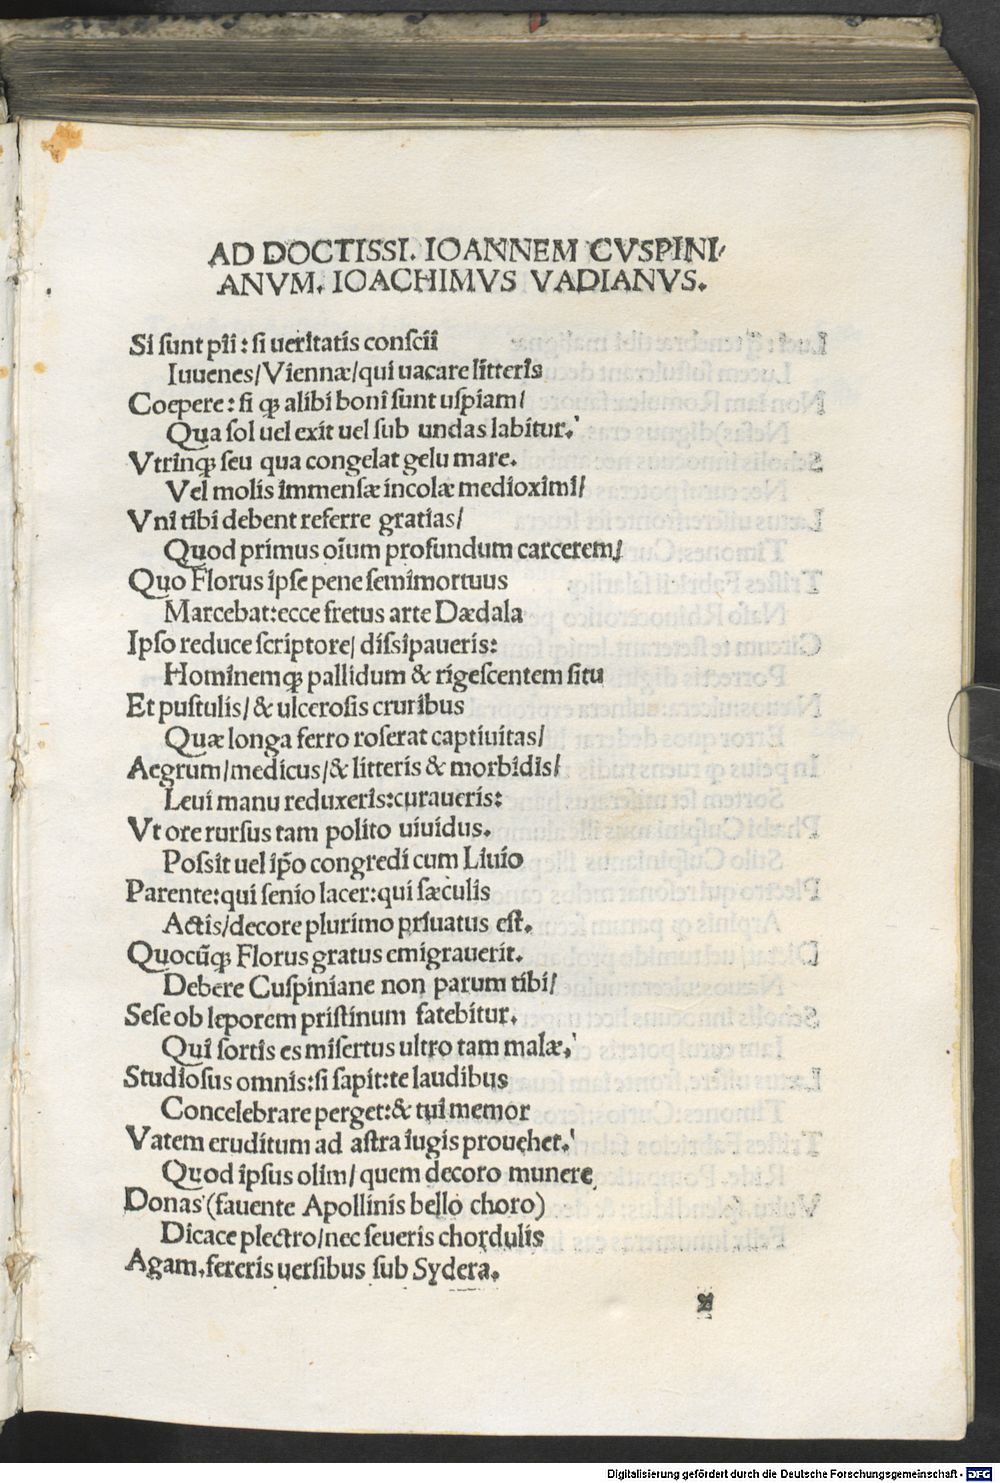 AD DOCTISSI. IOANNEM CVSPINI-
ANVM. IOACHIMVS VADIANVS.
Si sunt pii: si ueritatis conscii
Iuuenes/Viennæ/qui uacare litteris
Coepere: si qꝫ alibi boni sunt uspiam/
Qua sol uel exit uel sub undas labitur.
Vtrinqꝫ seu qua congelat gelu mare.
Vel molis immensæ incolæ medioximi/
Vni tibi debent referre gratias/
Quod primus oīum profundum carcerem/
Quo Florus ipse pene semimortuus
Marcebat: ecce fretus arte Dædala
Ipso reduce scriptore/dissipaueris:
Hominemqꝫ pallidum & rigescentem situ
Et pustulis/& ulcerosis cruribus
Quæ longa ferro roserat captiuitas/
Aegrum/medicus/& litteris & morbidis/
Leui manu reduxeris: curaueris:
Vt ore rursus tam polito uiuidus.
Possit uel ip̄o congredi cum Liuio
Parente: qui senio lacer: qui sæculis
Actis/decore plurimo priuatus est.
Quocūqꝫ Florus gratus emigrauerit.
Debere Cuspiniane non parum tibi/
Sese ob leporem pristinum fatebitur.
Qui sortis es misertus ultro tam malæ.
Studiosus omnis: si sapit: te laudibus
Concelebrare perget: & tui memor
Vatem eruditum ad astra iugis prouehet.
Quod ipsus olim/quem decoro munere
Donas (fauente Apollinis bello choro)
Dicace plectro/nec seueris chordulis
Agam. fereris uersibus sub Sydera.
Digitalisierung gefördert durch die Deutsche Forschungsgemeinschaft - DFG